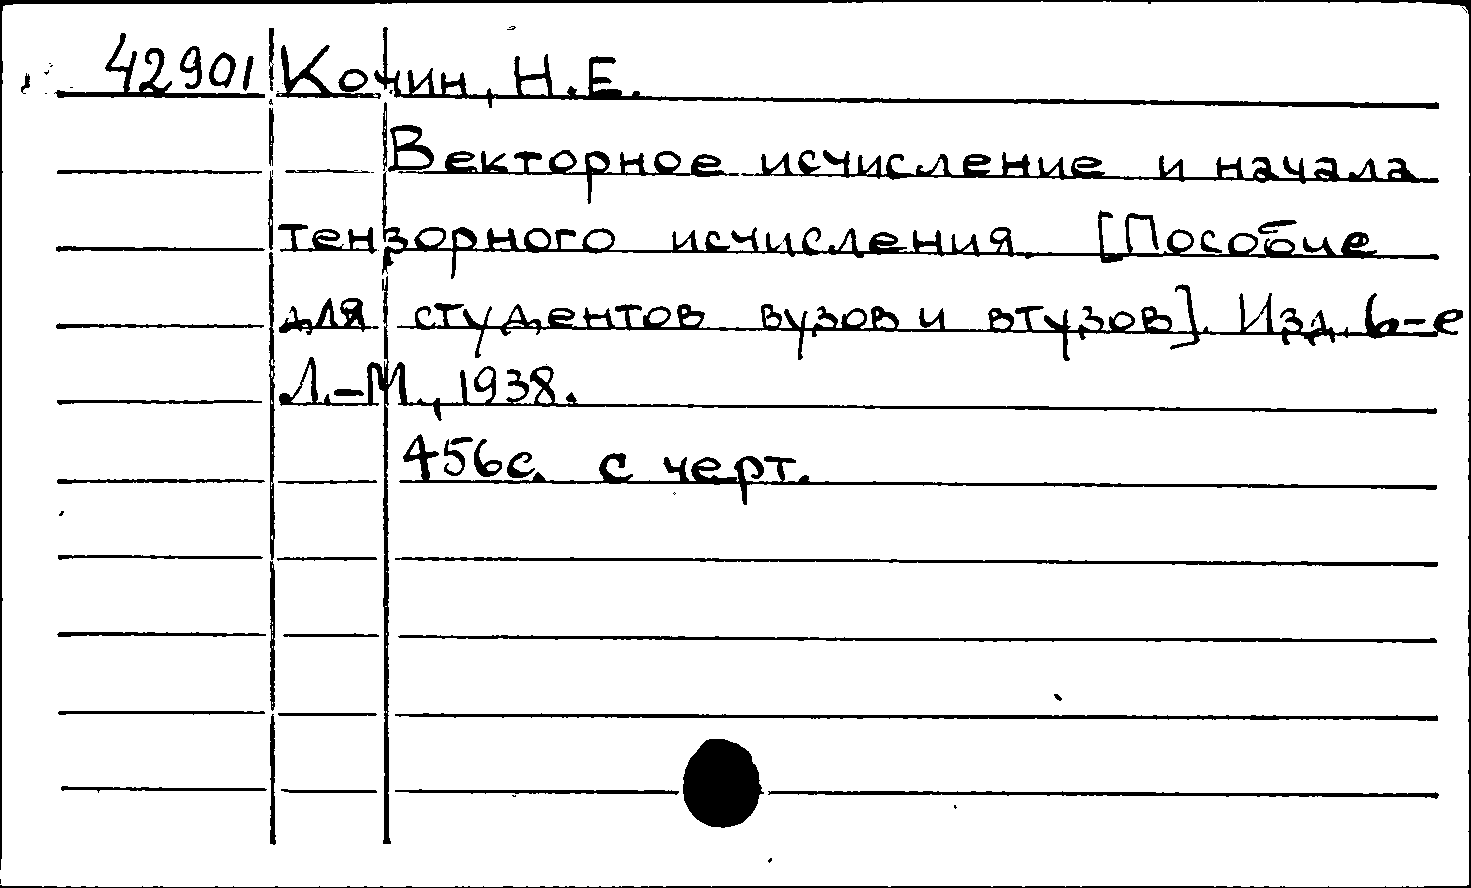 42901 Кочин, Н.Е.
Векторное исчисление и начала
тензорного исчисления. [Пособие
для студентов вузов и втузов]. Изд. 6-е
Л.-М., 1938.
456с. с черт.